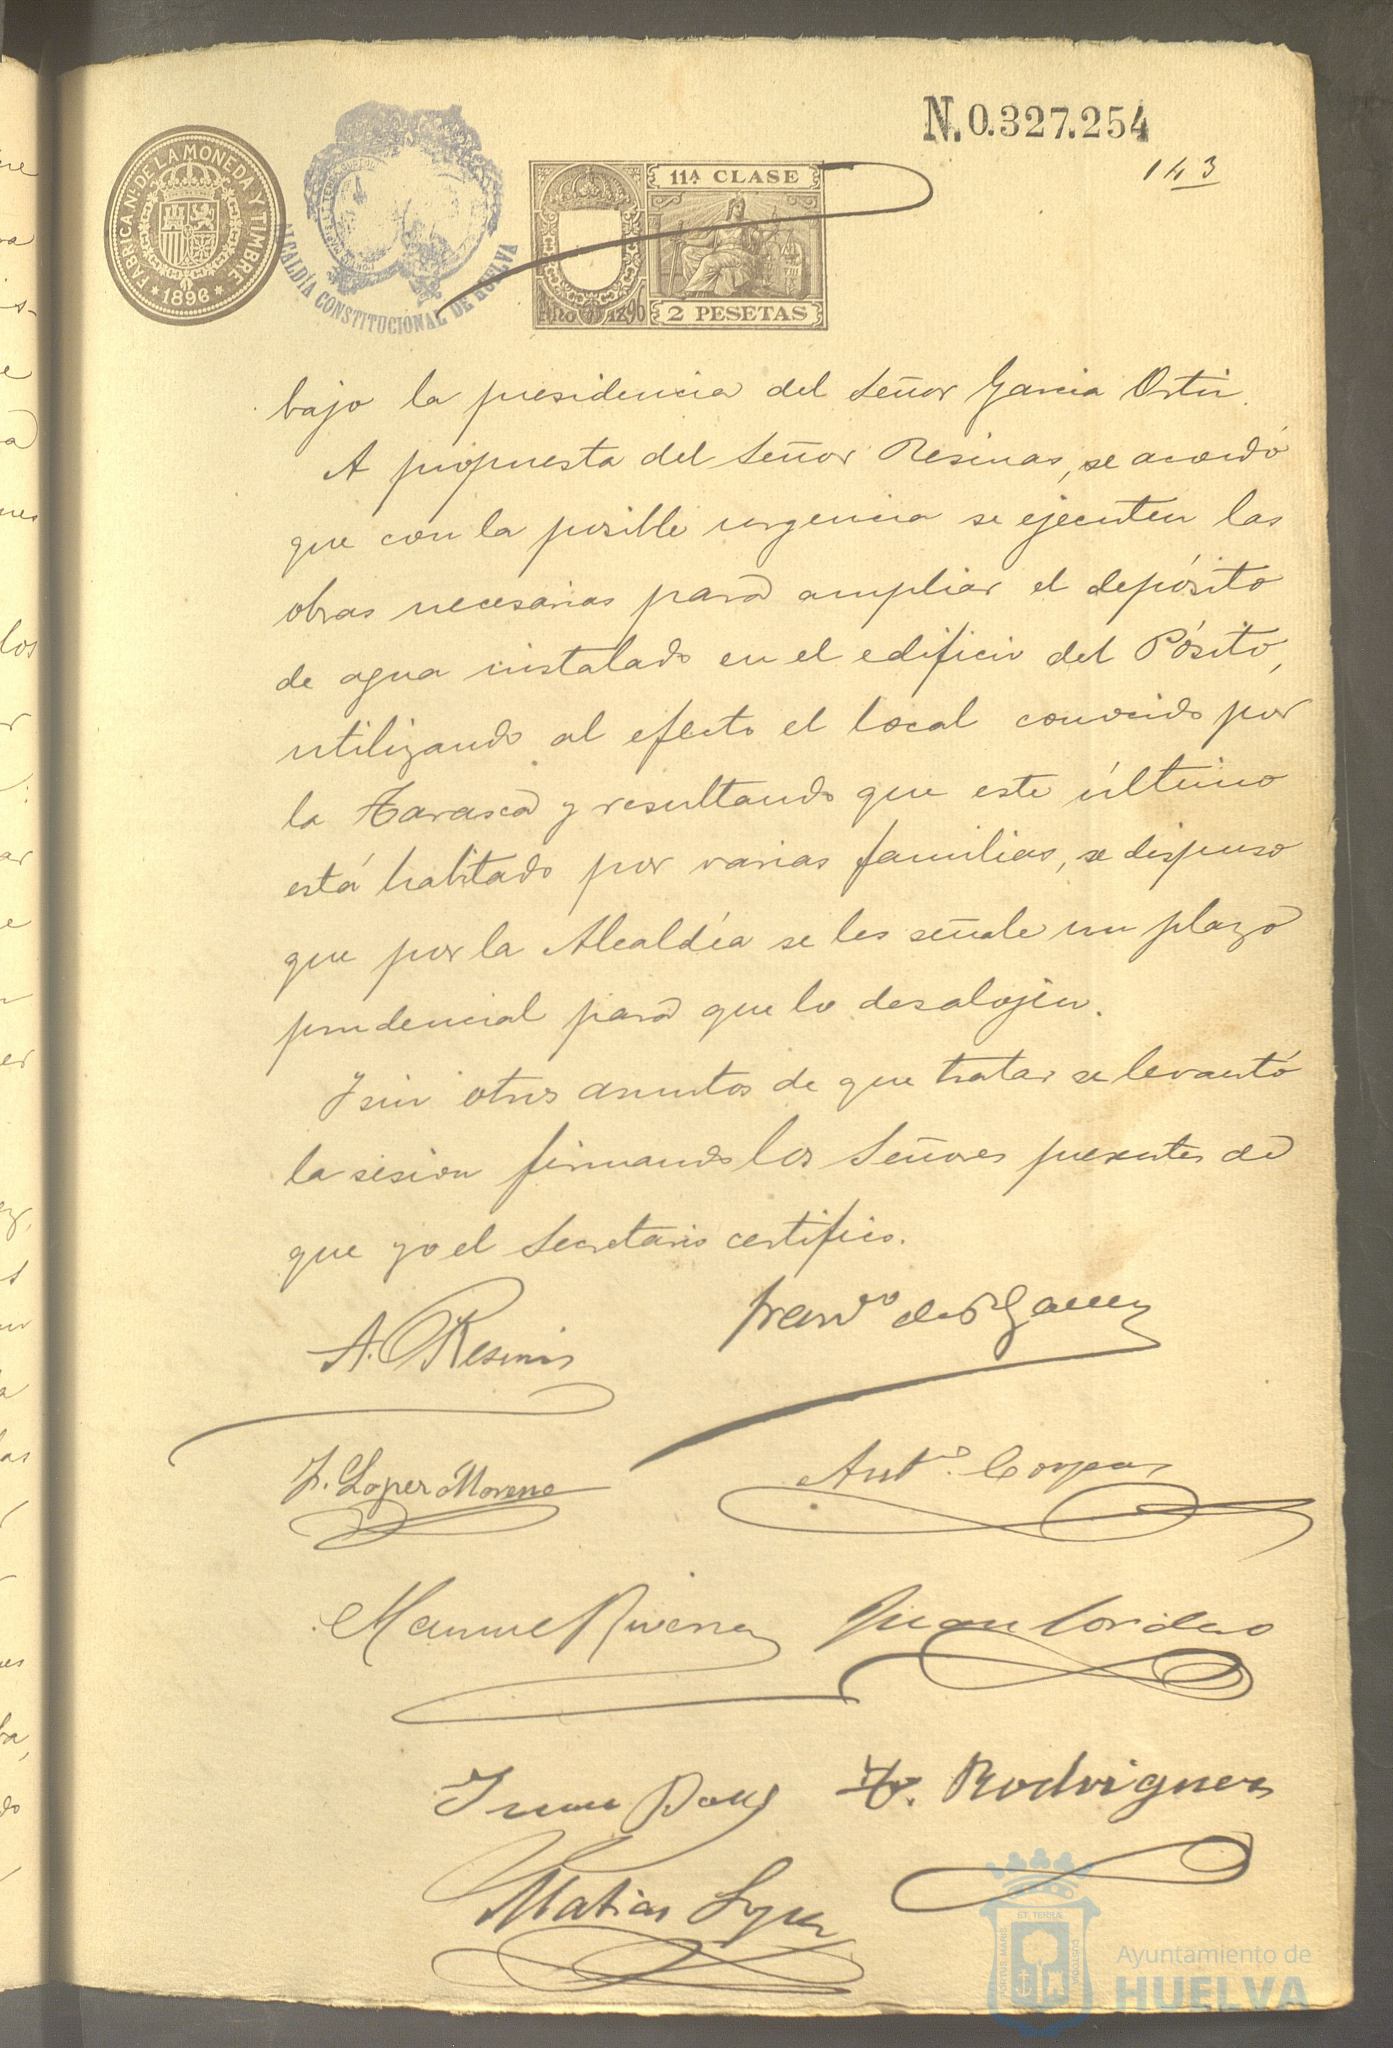 N. 0.327.254
143
FÁBRICA NL. DE LA MONEDA Y TIMBRE
* 1896 *
ALCALDÍA CONSTITUCIONAL DE HUELVA
11ª CLASE
Año de 1896
2 PESETAS
bajo la presidencia del Señor Garcia Ortiz.
A propuesta del Señor Resinas, se acordó
que con la posible urgencia se ejecuten las
obras necesarias para ampliar el depósito
de agua instalado en el edificio del Pósito,
utilizando al efecto el local conocido por
la Tarasca y resultando que este último
está habitado por varias familias, se dispuso
que por la Alcaldía se les señale un plazo
prudencial para que lo desalojen.
Y sin otros asuntos de que tratar se levantó
la sesion firmando los Señores presentes de
que yo el Secretario certifico.
A. Resinas
Franco de P Garcia
J. Lopez Moreno
Anto.
Manuel Rivera
Juan Cordero
Juan
Rodriguez
Matias Lopez
PORTUS MARIS ET TERRAE CUSTODIA
Ayuntamiento de
HUELVA